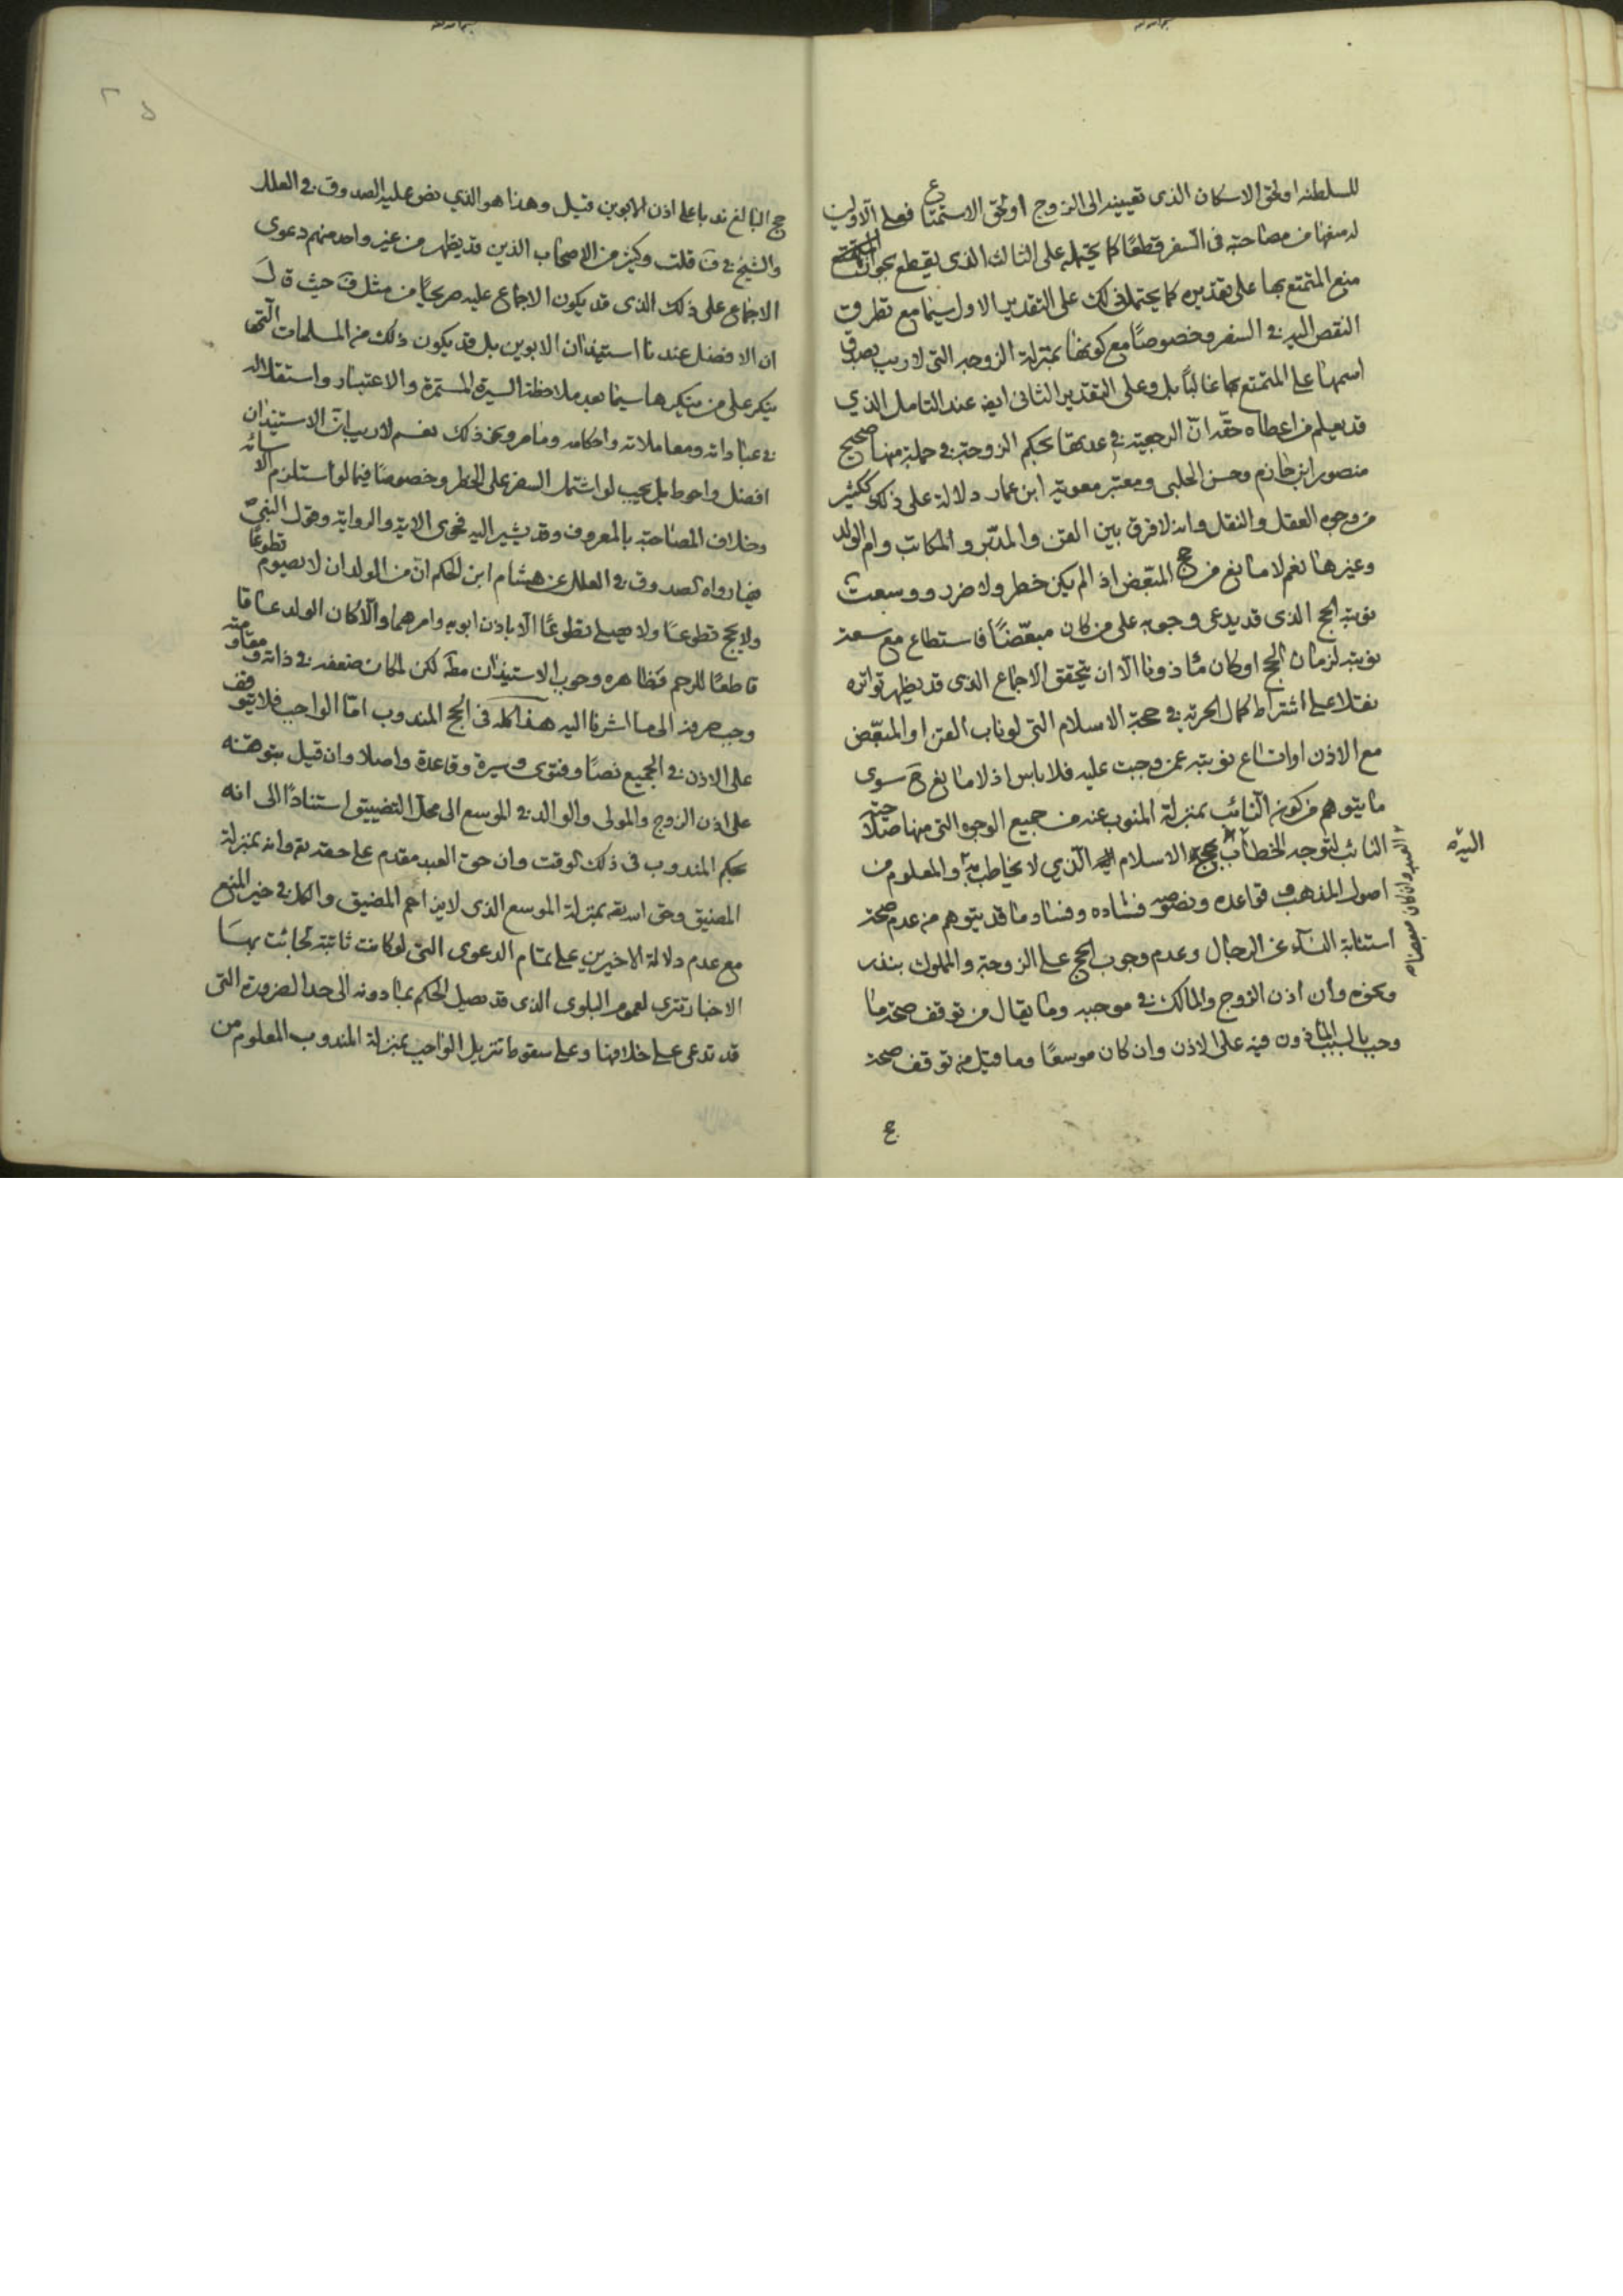 للسلطنة او لحق الاسكان الذى تعيينه الى الزوج او لحق الاستمتاع فعلى الاولين
له منعها من مصاحبته فى السفر قطعًا كما يحتمله على الثالث الذى يقطع بجواز
منع المتمتع بها على تقديره كما يحتمل ذلك على التقدير الاول سيما مع تطرق
النقص اليه فى السفر وخصوصًا مع كونها بمنزلة الزوجه التى لا ريب بصدق
اسمها على المتمتع بها غالبًا بل وعلى التقدير الثانى ايض عند التامل الذي
قد يعلم من اعطاه حقه ان الرجعية فى عدتها بحكم الزوجة فى جملة منها صحيح
منصور ابن حازم وحسن الحلبى ومعتبر معوية ابن عمار دلالة على ذلك ككثير
من وجوه العقل والنقل وانه لا فرق بين القن والمدبّر والمكاتب وام الولد
وغيرها نعم لا مانع من حج المبعّض اذ الم يكن خطر ولا ضرر ووسعت
نوبته الحج الذى قد يدعى وجوبه على من كان مبعّضًا فاستطاع مع سعة
نوبته لزمان الحج او كان ماذونا الّا ان يتحقق الاجماع الذى قد يظهر تواتره
نقلا على اشتراط كمال الحرية فى حجة الاسلام التى لو ناب القن او المبعّض
مع الاذن او اتساع نوبته عمن وجبت عليه فلا باس اذ لا مانع ح سوى
ما يتوهم من كون النائب بمنزلة المنوب عنه من جميع الوجوه التى منها صلاحيّة
النائب لتوجه الخطاب بحجة الاسلام اليه الّذي لا يخاطب به والمعلوم من
العبد وان كان مبعضا
اصول المذهب وقواعده ونصوصه فساده وفساد ما قد يتوهم من عدم صحة
استنابة النساء عن الرجال وعدم وجوب الحج على الزوجة والمملوك بنذر
ونحوه وان اذن الزوج والمالك فى موجبه وما يقال من توقف صحة ما
وجب بالسبب الماذون فيه على الاذن وان كان موسعًا وما قيل من توقف صحة
حج البالغ ندبا على اذن الابوين قيل وهذا هو الذي نص عليه الصدوق فى العلل
والشيخ فى ف قلت وكثير من الاصحاب الذين قد يظهر من غير واحد منهم دعوى
الاجماع على ذلك الذى قد يكون الاجماع عليه صريحًا من مثل ف حيث قال
ان الافضل عندنا استيذان الابوين بل قد يكون ذلك من المسلمات التى
ينكر على من ينكرها سيما بعد ملاحظة السيرة المستمرة والاعتبار واستقلاله
فى عباداته ومعاملاته واحكامه وما مر ونحو ذلك نعم لا ريب ان الاستيذان
افضل واحوط بل يجب لو اشتمل السفر على الخطر وخصوصًا فيما لو استلزم الاسائة
وخلاف المصاحبة بالمعروف وقد يشير اليه فحوى الاية والرواية وقول النبي ص
فيما رواه الصدوق فى العلل عن هشام ابن الحكم انّ من الولد ان لا يصوم تطوعًا
ولا يحج تطوعًا ولا يصلى تطوعًا الّا باذن ابويه وامرهما والّا كان الولد عاقا
قاطعًا للرحم فظاهره وجوب الاستيذان مطّ لكن لمكان ضعفه فى ذاته ومقاومته
وجب صرفه الى ما اشرنا اليه هذا كله فى الحج المندوب امّا الواجب فلا يتوقف
على الاذن فى الجميع نصًا وفتوى وسيرة وقاعدة واصلا وان قيل بتوقفه
على اذن الزوج والمولى والوالد فى الموسع الى محل التضييق استنادًا الى انه
بحكم المندوب فى ذلك الوقت وان حق العبد مقدم على حقه تع وانه بمنزلة
المضيق وحق الله تع بمنزلة الموسع الذى لا يزاحم المضيق والكل فى حيز المنع
مع عدم دلالة الاخيرين على تمام الدعوى التى لو كانت ثابتة لجائت بها
الاخبار تترى لعموم البلوى الذى قد يصيل الحكم بما دونه الى حد الضرورة التى
قد تدعى على خلافها وعلى سقوط تنزيل الواجب بمنزلة المندوب المعلوم من